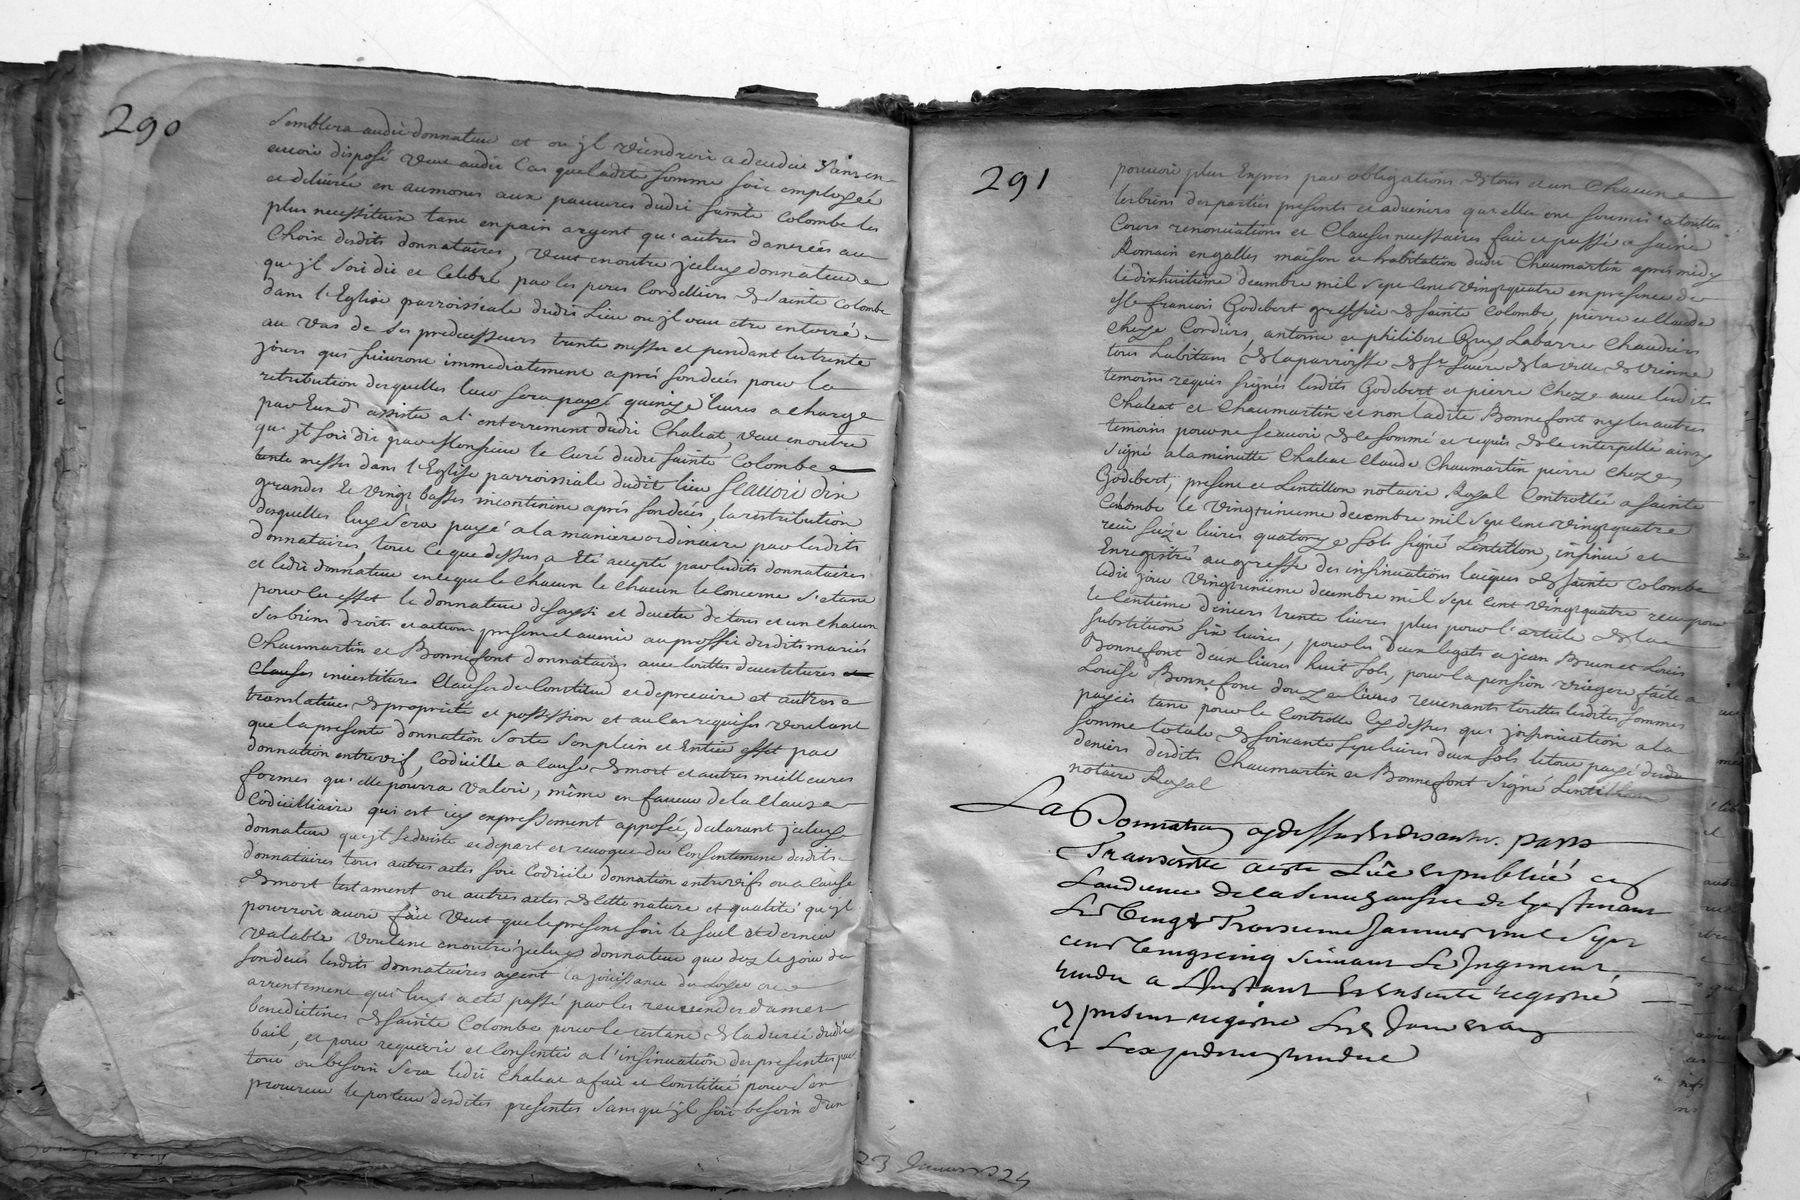 290
semblera audit donnateur et ou jl viendroit a deceder sans en
avoir disposé veut audit cas que ladite somme soit employée
et delivrée en aumones aux pauvres dudit sainte Colombe les
plus necessiteux tant en pain argent qu'autres danrées au
choix desdits donnataires, veut en outre jceluy donnateur
qu'jl soit dit et celebré par les peres Cordelliers de Sainte Colombe
dans l'Eglise parroissiale dudit Lieu ou jl veut etre enterré
au vas de ses predecesseurs trente messes et pendant les trente
jours qui suivront immediatement aprés son decés pour la
retribution desquelles leur sera payé quinze livres a charge
par Eux d'assister a l'enterrement dudit Chaleat, veut en outre
qu'jl soit dit par Monsieur le Curé dudit sainte Colombe
trente messes dans l'Eglise parroissiale dudit lieu Scavoir dix
grandes et vingt basses incontinent aprés son decés, la restribution
desquelles luy sera payé a la maniere ordinaire par lesdits
donnataires, tout ce que dessus a été accepté par lesdits donnataires
et ledit donnateur en ce que le chacun le chacun le concerne s'etant
pour cet effet le donnateur desaysi et devetu de tous et un chacun
ses biens droits et actions present et avenir au proffit desdits mariés
Chaumartin et Bonnefont donnataires avec touttes devestitures et
clauses investitures clauses de Constitut et de precaire et autres
translatives de proprieté et possession et au cas requises voulant
que la presente donnation sorte son plein et Entier effet par
donnation entrevif, codicille a cause de mort et autres meilleures
formes qu'elle pourra valoir, même en faveur de la clause
Codicilliaire qui est icy expressement apposée, declarant jceluy
donnateur qu'jl se desiste et depart et revoque du consentement desdits
donnataires tous autres actes soit Codicile donnation entrevifs ou a cause
de mort testament ou autres actes de cette nature et qualité qu'jl
pourroit avoir fait veut que le present soit le seul et dernier
valable voulant en outre jceluy donnateur que dez le jour de
son decés lesdits donnataires ayent la jouissance du
arrentement qui luy a eté passé par les reverendes dames
benedictines de sainte Colombe pour le restant de la durée dudit
bail, et pour requerir et consentir a l'insinuation des presentes par
tout ou besoin sera ledit Chaleat a fait et constitué pour son
procureur le porteur desdites presentes sans qu'jl soit besoin d'un
291
pouvoir plus Expres par obligations de tous et un Chacun
les biens des parties presents et advenirs qu'elles ont soumis a touttes
Cours renonciations et Clauses necessaires fait et passé a saint
Romain en galles maison et habitation dudit Chaumartin aprés midy
le dixhuitieme decembre mil sept cent vingtquatre en presence de
sr francois Godebert greffier de sainte Colombe, pierre et Claude
Cheze Cordiers, antoine et philibert Labarre Chaudiers
tous habitans de la parroisse de la ville de Vienne
temoins requis signés lesdits Godebert et pierre Cheze avec lesdits
Chaleat et Chaumartin et non ladite Bonnefont ny les autres
temoins pour ne scavoir de ce sommé et requis de ce interpellé ainsy
signé a la minutte Chaleat Claude Chaumartin pierre Cheze
Godebert, present et Lentillon notaire Royal Controllé a sainte
Colombe le vingtunieme decembre mil sept cent vingtquatre
recu seize livres quatorze sols signé Lentillon, insinué et
Enregistré au greffe des insinuations laiques de sainte Colombe
ledit jour vingtunieme decembre mil sept cent vingtquatre recu pour
le centieme deniers trente livres plus pour l'article de la
substitution six livres, pour les deux legats a jean Brun et Louis
Bonnefont deux livres huit sols, pour la pension viagere faite a
Louise Bonnefont douze livres revenants touttes lesdites sommes
payées tant pour le Controlle cy dessus que jnsinuation a la
somme totale de soixante sept livres deux sols le tout payé des
deniers desdits Chaumartin et Bonnefont signé Lentillon
notaire Royal
La Donnation cy dessus et des autres parts
Transcritte a esté Lüe et publiée en
Laudience de la Senechaussée de Lyon tenant
Le Vingt Troisieme Janvier mil sept
cent vingtcinq suivant Le Jugement
rendu a Linstant et ensuite registré
au present registre Les Jour et an
23 Janvier 1725